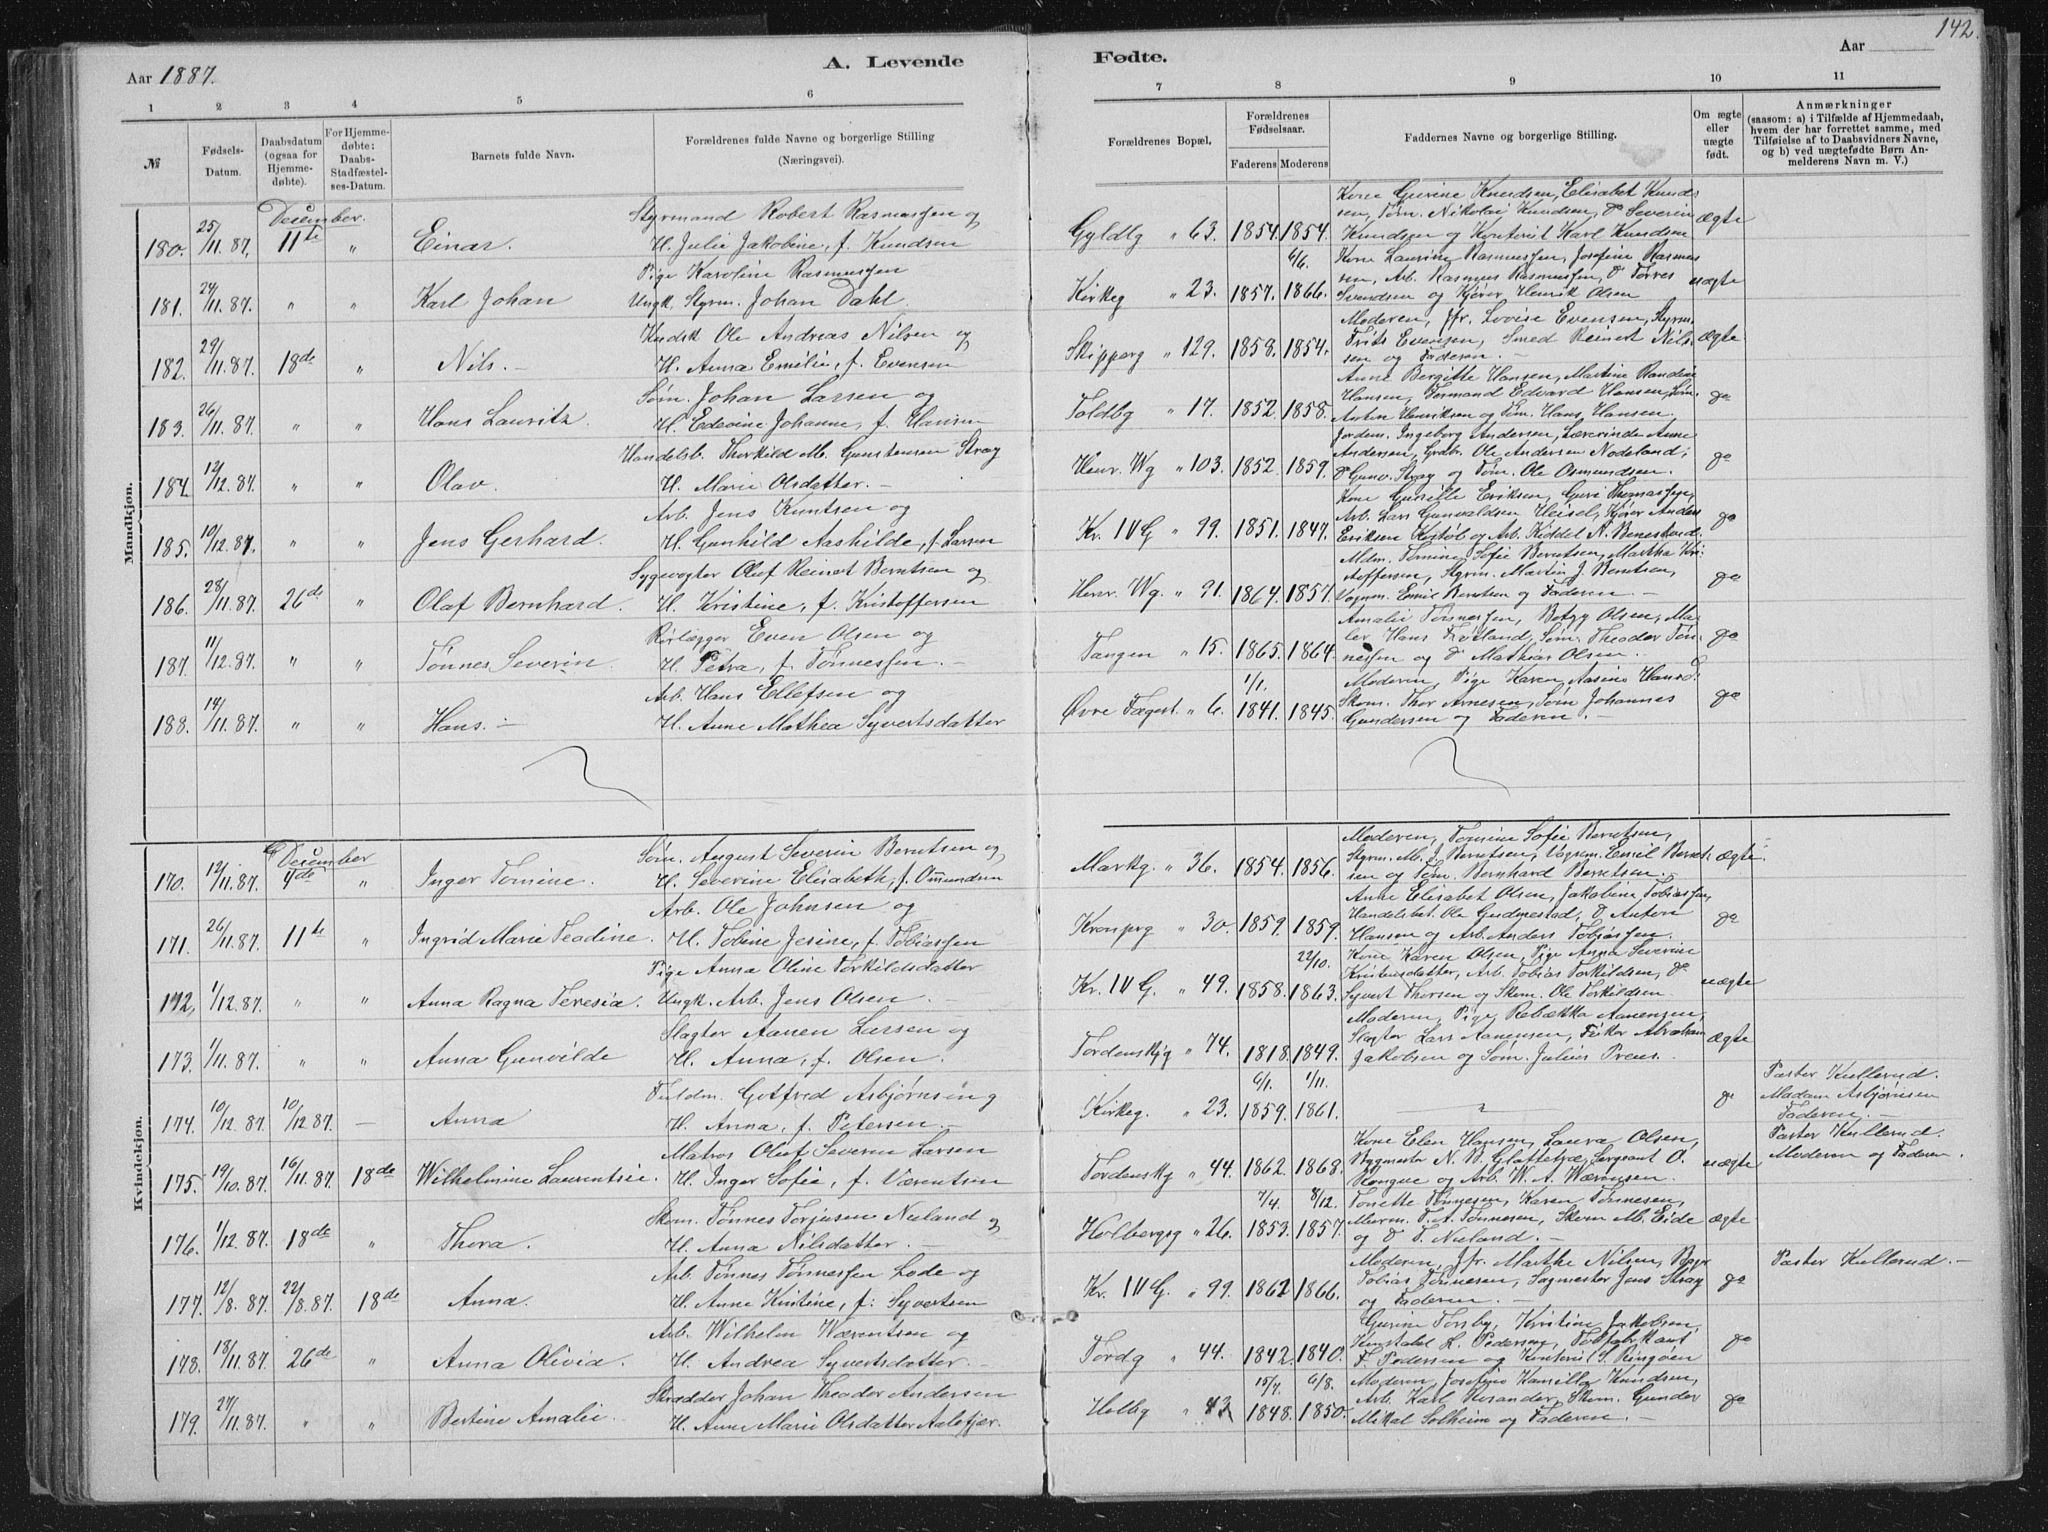 142.
Aar 1887.
A. Levende
Fødte.
Aar
1 2 3 4 5 6 7 8 9 10 11
№
Fødsels-Datum.
Daabsdatum (ogsaa for Hjemmedøbte).
For Hjemmedøbte: Daabs-Stadfæstelses-Datum.
Barnets fulde Navn.
Forældrenes fulde Navne og borgerlige Stilling (Næringsvei).
Forældrenes Bopæl.
Forældrenes Fødselsaar.
Faderens Moderens
Faddernes Navne og borgerlige Stilling.
Om ægte eller uægte født.
Anmærkninger
(saasom: a) i Tilfælde af Hjemmedaab, hvem der har forrettet samme, med Tilføielse af to Daabsvidners Navne, og b) ved uægtefødte Børn Anmelderens Navn m. V.)
Mandkjøn.
December.
180. 25/11.87. 11te " Einar.
Styrmand Robert Rasmussen og
H. Julie Jakobine, f. Knudsen
Gyldlg " 63. 1854. 1854.
Kone Gurine Knudsen, Elisabet Knud-
sen, Tøm. Nikolai Knudsen, do Severin
Knudsen og Kontorist Karl Knudsen
ægte
181. 24/11.87. " " Karl Johan
Pige Karoline Rasmussen
Ungk. Styrm. Johan Dahl.
Kirkeg " 23. 1857. 6/6. 1866.
Kone Laurine Rasmussen, Josefine Rasmus
sen, Arb. Rasmus Rasmussen, do Tørres
Svendsen og Kjører Henrik Olsen
uægte
182. 29/11.87. 18de " Nils. -
Ole Andreas Nilsen og
H. Anna Emilie, f. Evensen
Skipperg " 129. 1858. 1854.
Moderen, Jfr. Lovise Evensen, Styrm.
Frits Evensen, Smed Reinert Nil-
sen og Faderen. -
ægte
183. 26/11.87. " " Hans Lauritz
Søm. Johan Larsen og
H. Edevine Johanne, f. Hansen
Toldbg " 17. 1852. 1858.
Anne Bergitte Hansen, Martine
Hansen, Formand Edvard Hansen, Søm.
Anton Henriksen og Tøm. Hans Hansen.
do
184. 12/12.87. " " Olav.
Handelsb. Thorkild M. Gunstensen Stray
H. Marie Olsdatter. -
Henr. Wg " 103. 1852. 1859.
Jordem. Ingeborg Andersen, Lærerinde Anne
Andersen, Grdb. Ole Andersen Nodeland,
do Gunv. Stray og Tøm. Ole Osmundsen.
do
185. 10/12.87. " " Jens Gerhard.
Arb. Jens Knutsen og
H. Gunhild Aashilde, f. Larsen
Kr. IV G " 99. 1851. 1847.
Kone Gunille Eriksen, Guri Thomassen,
Arb. Lars Gunvaldsen Heisel, Kjører Anders
Eriksen og Arb. Kiddel A. Benestad.
do
186. 28/11.87. 26de " Olaf Bernhard.
Sygevogter Oluf Reinert Berntsen og
H. Kristine, f. Kristoffersen
Henr. Wg. " 91. 1864. 1857.
Mdm. Tomine Sofie Berntsen, Martha Kri-
stoffersen, Styrm. Martin J. Berntsen,
Vognm. Emil Berntsen og Faderen. -
do
187. 11/12.87. " " Tønnes Severin.
Even Olsen og
H. Petra, f. Tønnessen. -
Tangen " 15. 1865. 1864.
Amalie Tønnessen, Betzy Olsen, Ma-
ler Hans Frøiland, Søm. Theodor Tøn-
nessen og do Mathias Olsen.
do
188. 14/11.87. " " Hans. -
Arb. Hans Ellefsen og
H. Anne Mathea Syvertsdatter
Øvre Fægest. " 6. 1/1. 1841. 1845.
Moderen, Pige Karen Aasine Hansd.
Skom. Thor Arnesen, Søm Johannes
Gundersen og Faderen. -
do
Kvindekjøn.
December
170. 12/11.87. 4de " Inger Tomine.
Søm. August Severin Berntsen og
H. Severine Elisabeth, f. Omundsen
Markg. " 36. 1854. 1856.
Moderen, Tomine Sofie Berntsen,
Styrm. M. J. Berntsen, Vognm. Emil Bernt-
sen og Tøm. Bernhard Berntsen.
ægte
171. 26/11.87. 11te " Ingrid Marie Teodine.
Arb. Ole Johnsen og
H. Tobine Jesine, f. Tobiassen
Kronprg " 30. 1859. 1859.
Anne Elisabet Olsen, Jakobine Tobiassen,
Handelsbet. Ole Gudmestad, do Anton
Hansen og Arb. Anders Tobiassen.
do
172. 1/12.87. " " Anna Ragna Teresia.
Pige Anna Oline Torkildsdatter
Ungk. Arb. Jens Olsen.
Kr. IV G. " 49. 1858. 22/10. 1863.
Kone Karen Olsen, Pige Anna Severine
Kristensdatter, Arb. Tobias Torkildsen, do
Syvert Thorsen og Skom. Ole Torkildsen.
uægte
173. 1/11.87. " " Anna Gunvilde
Slagter Aanen Larsen og
H. Anna, f. Olsen.
Tordenskjg " 74. 1818. 1849.
Moderen, Pige Rebækka Aanensen,
Slagter Lars Aanensen, Fisker Abraham
Jakobsen og Søm. Julius Preus.
ægte
174. 10/12.87. 10/12.87. - Anna
Fuldm. Gotfred Asbjørnsen og
H. Anna, f. Petersen. -
Kirkeg. " 23. 6/1. 1859. 1/11. 1861.
do
Pastor Kullerud.
Madam Asbjørnsen
Faderen. -
175. 19/10.87. 16/11.87. 18de Wilhelmine Laurentsie.
Matros Oluf Severin Larsen
H. Inger Sofie, f. Værentsen
Tordenskg " 44. 1862. 1868.
Kone Elen Hansen, Laura Olsen,
Bygmester N. B. Glattetræ, Sergeant O.
Kongue og Arb. W. A. Wærensen.
uægte
Pastor Kullerud.
Moderen og Faderen.
176. 1/12.87. 18de " Thora.
Skom. Tønnes Torjusen Nuland og
H. Anna Nilsdatter. -
Holbergsg " 26. 7/4. 1853. 8/12. 1857.
Tonette Tønnesen, Karen Tønnesen,
Murm. T. A. Tønnesen, Skom M. Eide
og do T. Nuland. -
ægte
177. 12/8.87. 22/8.87. 18de Anna.
Arb. Tønnes Tønnessen Lode og
H. Anne Kristine, f. Syvertsen
Kr. IV G. " 99. 1862 1866.
Moderen, Jfr. Marthe Nilsen,
Tobias Tønnesen, Sagmester Jens Stray
og Faderen. -
do
Pastor Kullerud. -
178. 18/11.87. 26de " Anna Olivia.
Arb. Wilhelm Wærentsen og
H. Andrea Syvertsdatter. -
Tordg " 44. 1842. 1840.
Gurine Torsby, Kristine Jakobsen,
Konstabel L. Pedersen, Tobfabrikant
F. Pedersen og Kontorist S. Ringøen
do
179. 27/11.87. " " Bertine Amalie.
Skrædder Johan Theodor Andersen
H. Anne Marie Olsdatter Aalefjær.
Holbg " 43. 15/7. 1848. 6/8. 1850.
Moderen, Josefine Kamilla Knudsen,
Arb. Karl Rosander, Skom. Gunder
Mikal Solheim og Faderen. -
do